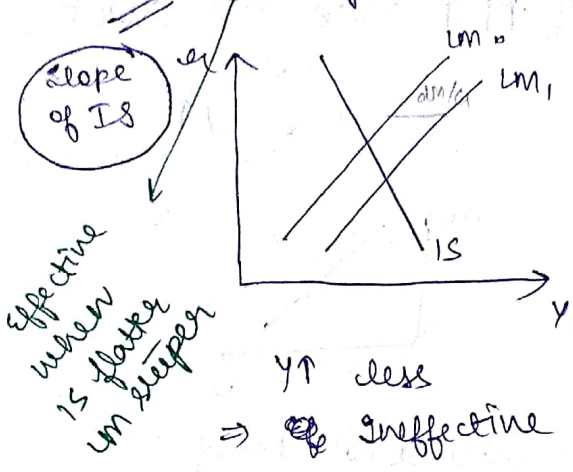 Slope
of IS
r
LM0
LM1
IS
Y
Effective
when
IS flatter
LM steeper
Y↑ less
⇒ Ineffective